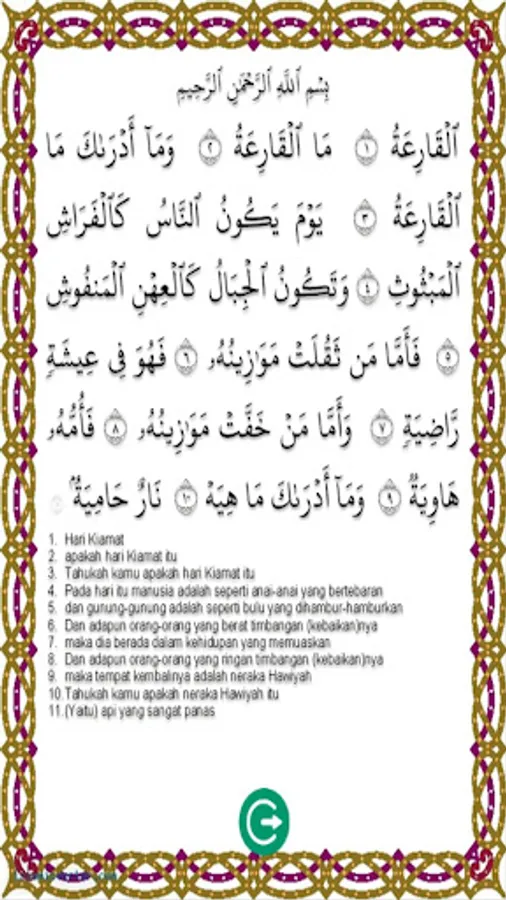 بِسْمِ ٱللَّهِ ٱلرَّحْمَٰنِ ٱلرَّحِيمِ
ٱلْقَارِعَةُ ١ مَا ٱلْقَارِعَةُ ٢ وَمَآ أَدْرَىٰكَ مَا
ٱلْقَارِعَةُ ٣ يَوْمَ يَكُونُ ٱلنَّاسُ كَٱلْفَرَاشِ
ٱلْمَبْثُوثِ ٤ وَتَكُونُ ٱلْجِبَالُ كَٱلْعِهْنِ ٱلْمَنفُوشِ
٥ فَأَمَّا مَن ثَقُلَتْ مَوَٰزِينُهُۥ ٦ فَهُوَ فِى عِيشَةٍ
رَّاضِيَةٍ ٧ وَأَمَّا مَنْ خَفَّتْ مَوَٰزِينُهُۥ ٨ فَأُمُّهُۥ
هَاوِيَةٌ ٩ وَمَآ أَدْرَىٰكَ مَا هِيَهْ ١٠ نَارٌ حَامِيَةٌۢ
1. Hari Kiamat
2. apakah hari Kiamat itu
3. Tahukah kamu apakah hari Kiamat itu
4. Pada hari itu manusia adalah seperti anai-anai yang bertebaran
5. dan gunung-gunung adalah seperti bulu yang dihambur-hamburkan
6. Dan adapun orang-orang yang berat timbangan (kebaikan)nya
7. maka dia berada dalam kehidupan yang memuaskan
8. Dan adapun orang-orang yang ringan timbangan (kebaikan)nya
9. maka tempat kembalinya adalah neraka Hawiyah
10. Tahukah kamu apakah neraka Hawiyah itu
11. (Yaitu) api yang sangat panas